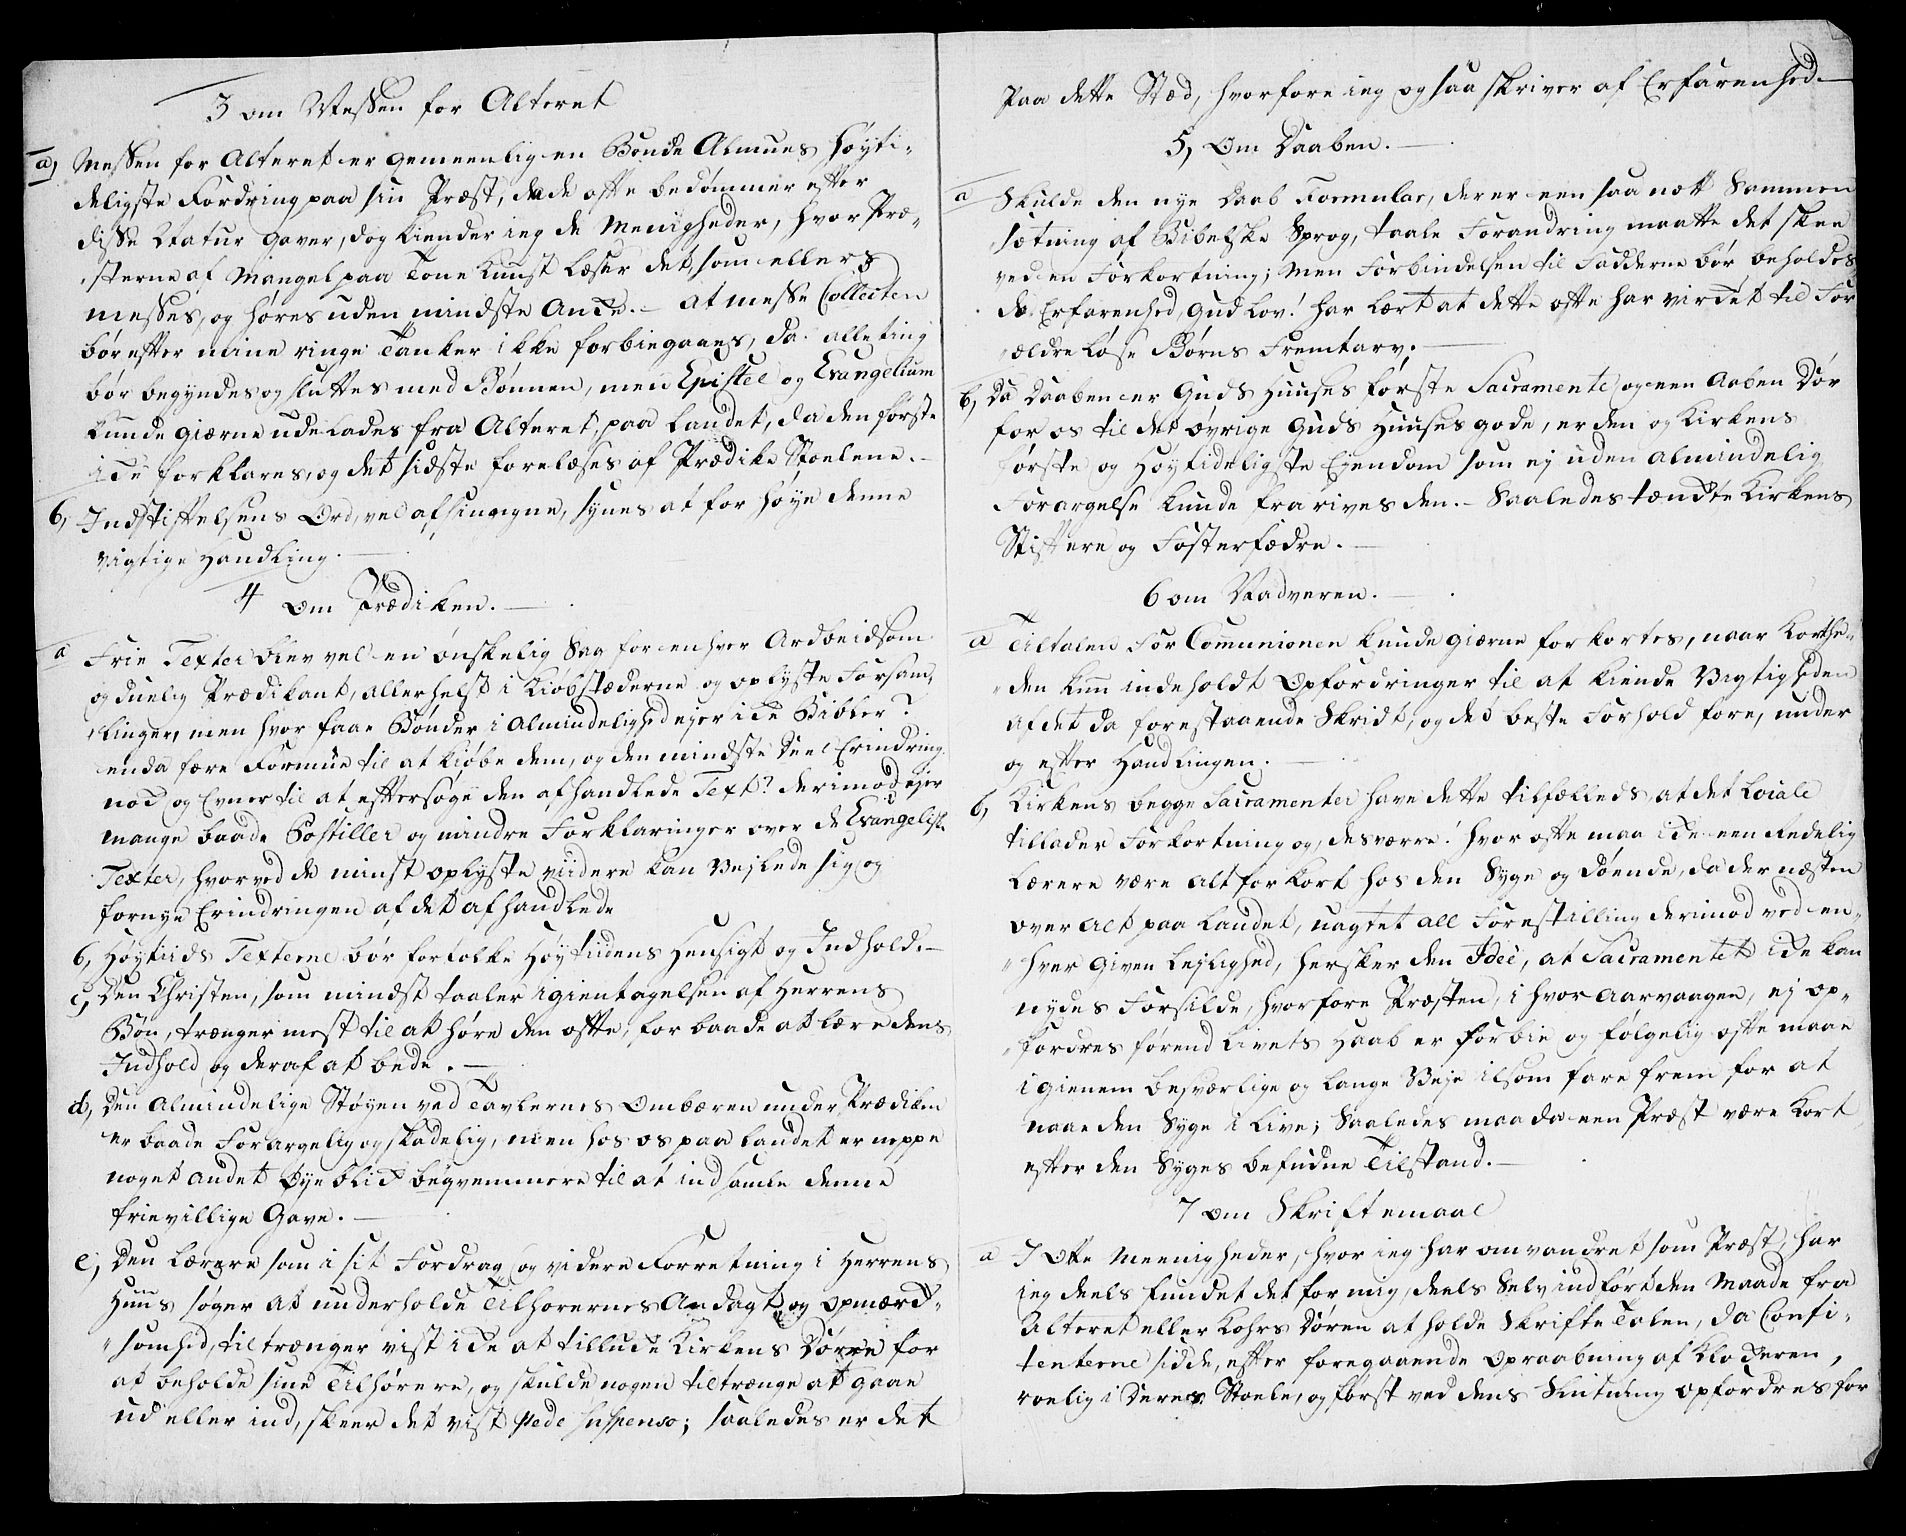 3 om Messen for Alteret
a, Messen for Alteret er gemeenlig en Bonde Almues Høyti-
deligste Fordring paa sin Præst, da de ofte bedømmer efter
disse Natur Gaver, dog kiender ieg de Menigheder, hvor Præ-
sterne af Mangel paa Tone Kunst læser det som ellers
messes, og høres uden mindste Anke. - At messe Collecten
bør efter mine ringe Tanker ikke forbiegaaes, da alle ting
bør begyndes og sluttes med Bønnen, men Epistel og Evangelium
kunde giærne udelades fra Alteret, paa Landet, da den første
icke forklares, og det sidste forelæses af Prædike Stoelene. -
b, Indstiftelsens Ord, vel afsiungne, synes at for høye denne
vigtige Handling. -
4 om Prædiken. -
a Frie Texter blev vel en ønskelig Sag for en hver Ardbeidsom
og duelig Prædikant, allerhelst i Kiøbstæderne og oplyste Forsam-
linger, men hvor faae Bønder i Almindelighed ejer icke Bibler?
enda færre Formue til at kiøbe dem, og den mindste Deel Erindring
nok og Evner til at eftersøge den afhandlede Text? derimod ejer
mange baade Postiller og mindre Forklaringer over de Evangelisk.
Texter, hvorved de minst oplyste viidere kan Vejlede sig og
fornye Erindringen af det afhandlede
b, Høytiids Texterne bør fortolke Høytiidens Hensigt og Indhold. -
c, Den Christen, som mindst taaler igientagelsen af Herrens
Bøn, trænger mest til at høre den ofte, for baade at lære dens
Indhold og deraf at bede. -
d, Den Almindelige Støyen ved Tavlernes Ombæren under Prædiken
er baade Forargelig og skadelig, men hos os paa Landet er neppe
noget andet Øyeblick beqvemmere til at indsamle denne
frievillige Gave. -
e, Den Lærere som i sit Fordrag og videre Forretning i Herrens
Huus søger at underholde Tilhørernes Andagt og Opmærk-
somhed, tiltrænger vist icke at tillucke Kirkens Dørre for
at beholde sine Tilhørere, og skulde nogen tiltrænge at gaae
ud eller ind, skeer det vist pede suspenso; saaledes er det
Paa dette Stæd, hvorfore ieg og saa skriver af Erfarenhed. -
5, Om Daaben. -
a Skulde den nye Daab Formular, der er een saa nett Sammen
sætning af Bibelske Sprog, taale Forandring maatte det skee
ved en Forkortning; Men Forbindelsen til Fadderne bør beholdes
da Erfarenhed, Gud Lov! har lært at dette ofte har virket til For
ældreløse Børns Fremtarv. -
b, Da Daaben er Guds Huuses første Sacramente og een Aaben Dør
for os til det øvrige Guds Huuses gode, er den og Kirkens
første og Høytideligste Ejendom som ej uden almindelig
Forargelse kunde frarives den. - Saaledes tænckte Kirkens
Stiftere og Fosterfædre. -
6 om Nadveren. -
a Tiltalen for Communionen kunde giærne forkortes, naar Korthe-
den kun indeholdt Opfordringer til at kiende Vigtigheden
af det da forestaaende Skridt, og det beste Forhold fore, under
og efter Handlingen. -
b, Kirkens begge Sacramenter have dette tilfælleds, at det Locale
tillader Forkortning og, desværre! hvor ofte maa icke een Redelig
Lærere være alt for kort hos den Syge og Døende, da der næsten
over alt paa Landet, uagtet all Forestilling derimod ved en-
hver given Lejlighed, hersker den Ideé, at Sacramentet icke kan
nydes Forsilde, hvorfore Præsten, i hvor aarvaagen, ej op-
fordres førend Livets Haab er forbie og følgelig ofte maae
igienem besværlige og lange Veje ilsom fare frem for at
naae den Syge i Live; Saaledes maa da een Præst være kort
efter den Syges befundne Tilstand. -
7 om Skriftemaal
a I Otte Meenigheder, hvor ieg har omvandret som Præst, har
ieg deels fundet det for mig, deels Selv indført den Maade fra
Alteret eller Kohrs Døren at holde Skrifte Talen, da Confi-
tenterne sidde, efter foregaaende Opraabning af Klockeren,
roelig i deres Stoele, og først ved dens Slutning opfordres for